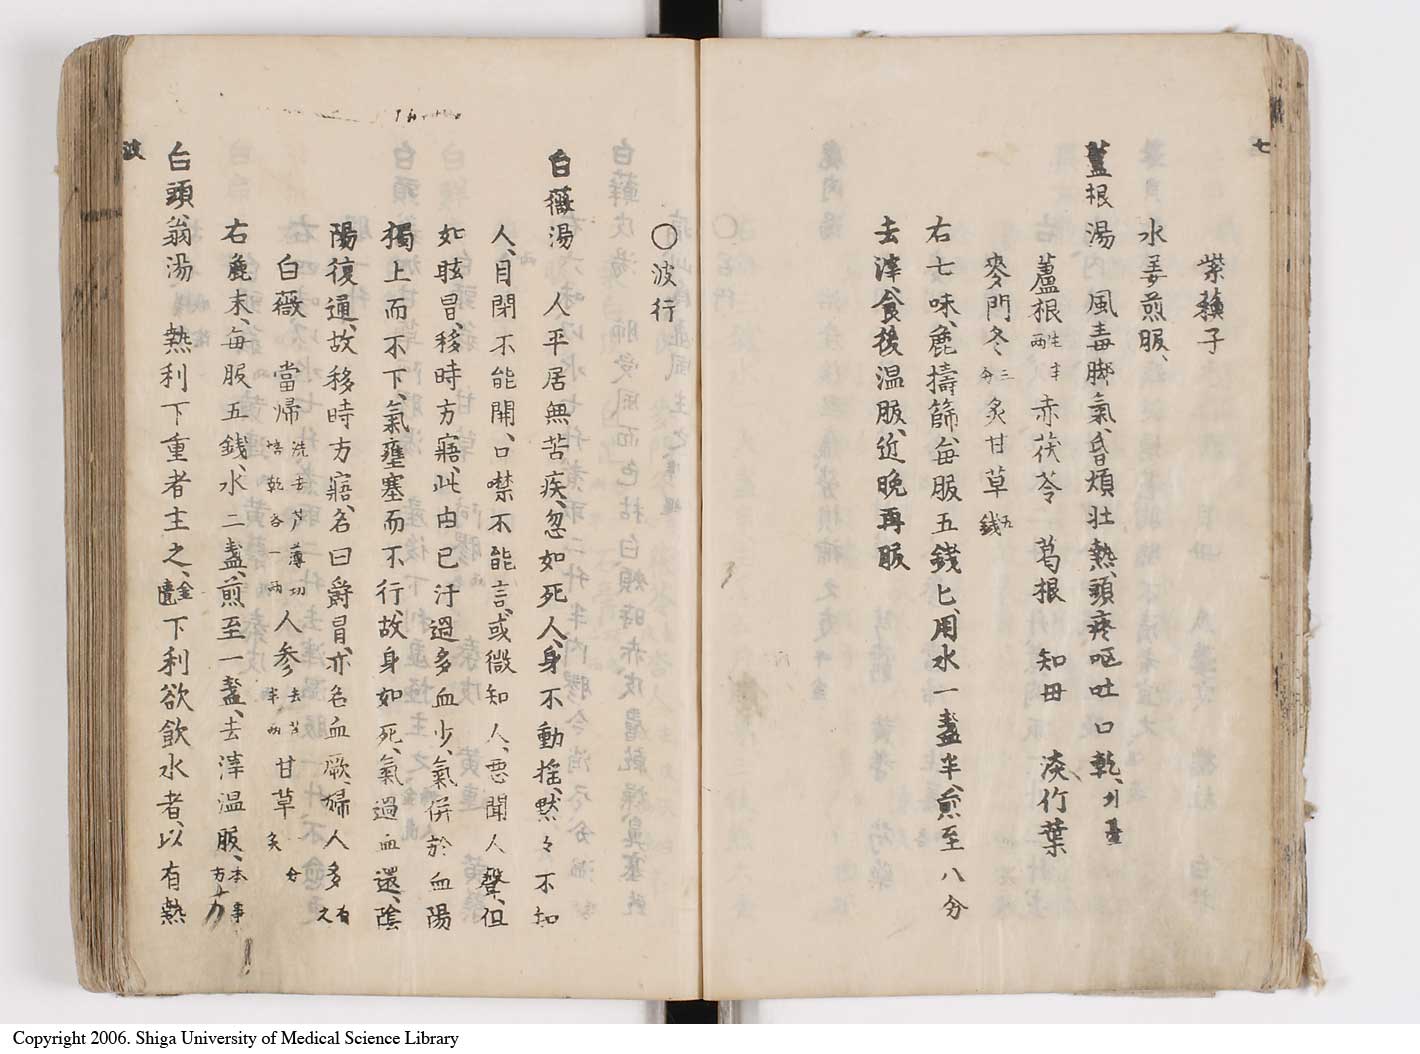 七
紫蘓子
水姜煎服、
蘆根湯　風毒脚氣、昏煩壮熱、頭疼呕吐口乾、外臺
蘆根生半兩　赤茯苓　葛根　知母　淡竹葉
麥門冬三分　炙甘草五錢
右七味、麁擣篩、每服五錢匕、用水一盞半、煎至八分
去滓、食後温服、近晚再服
〇波行
白薇湯　人平居無苦疾、忽如死人、身不動揺、黙々不知
人、目閉不能開、口噤不能言、或微知人、悪聞人聲、但
如眩冒、移時方寤、此由已汗過多血少、氣併於血陽
獨上而不下、氣壅塞而不行、故身如死、氣過血還、陰
陽復通、故移時方寤、名曰爵冒、亦名血厥、婦人多有之
白薇　當帰洗去芦薄切焙乾各一兩　人参去芦半兩　甘草炙
右麁末、每服五銭、水二盞、煎至一盞、去滓温服、本事方十
白頭翁湯　熱利下重者主之、金匱　下利欲飲水者、以有熱
波
Copyright 2006. Shiga University of Medical Science Library